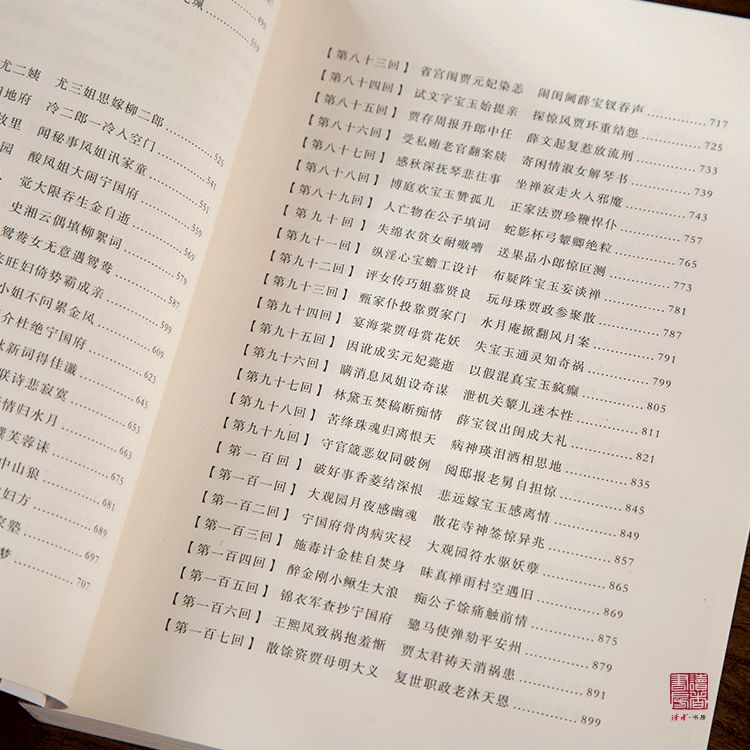 499
519
尤二姨 尤三姐思嫁柳二郎 525
地府 冷二郎一冷入空门 541
故里 闻秘事凤姐讯家童 551
园 酸凤姐大闹宁国府 559
觉大限吞生金自逝 569
史湘云偶填柳絮词 579
鸳鸯女无意遇鸳鸯 587
来旺妇倚势霸成亲 599
小姐不问累金凤 609
介杜绝宁国府 623
新词得佳谶 645
联诗悲寂寞 653
情归水月 663
芙蓉诔 675
中山狼 681
妇方 689
家塾 697
梦 707
【第八十三回】 省宫闱贾元妃染恙 闹闺阃薛宝钗吞声 717
【第八十四回】 试文字宝玉始提亲 探惊风贾环重结怨 725
【第八十五回】 贾存周报升郎中任 薛文起复惹放流刑 733
【第八十六回】 受私贿老官翻案牍 寄闲情淑女解琴书 739
【第八十七回】 感秋深抚琴悲往事 坐禅寂走火入邪魔 743
【第八十八回】 博庭欢宝玉赞孤儿 正家法贾珍鞭悍仆 757
【第八十九回】 人亡物在公子填词 蛇影杯弓颦卿绝粒 765
【第九十回】 失绵衣贫女耐嗷嘈 送果品小郎惊叵测 773
【第九十一回】 纵淫心宝蟾工设计 布疑阵宝玉妄谈禅 781
【第九十二回】 评女传巧姐慕贤良 玩母珠贾政参聚散 787
【第九十三回】 甄家仆投靠贾家门 水月庵掀翻风月案 791
【第九十四回】 宴海棠贾母赏花妖 失宝玉通灵知奇祸 799
【第九十五回】 因讹成实元妃薨逝 以假混真宝玉疯癫 805
【第九十六回】 瞒消息凤姐设奇谋 泄机关颦儿迷本性 811
【第九十七回】 林黛玉焚稿断痴情 薛宝钗出闺成大礼 821
【第九十八回】 苦绛珠魂归离恨天 病神瑛泪洒相思地 839
【第九十九回】 守官箴恶奴同破例 阅邸报老舅自担惊 845
【第一百回】 破好事香菱结深恨 悲远嫁宝玉感离情 849
【第一百一回】 大观园月夜感幽魂 散花寺神签惊异兆 857
【第一百二回】 宁国府骨肉病灾祲 大观园符水驱妖孽 865
【第一百三回】 施毒计金桂自焚身 昧真禅雨村空遇旧 869
【第一百四回】 醉金刚小鳅生大浪 痴公子馀痛触前情 875
【第一百五回】 锦衣军查抄宁国府 骢马使弹劾平安州 879
【第一百六回】 王熙凤致祸抱羞惭 贾太君祷天消祸患 891
【第一百七回】 散馀资贾母明大义 复世职政老沐天恩 899
读者·书房